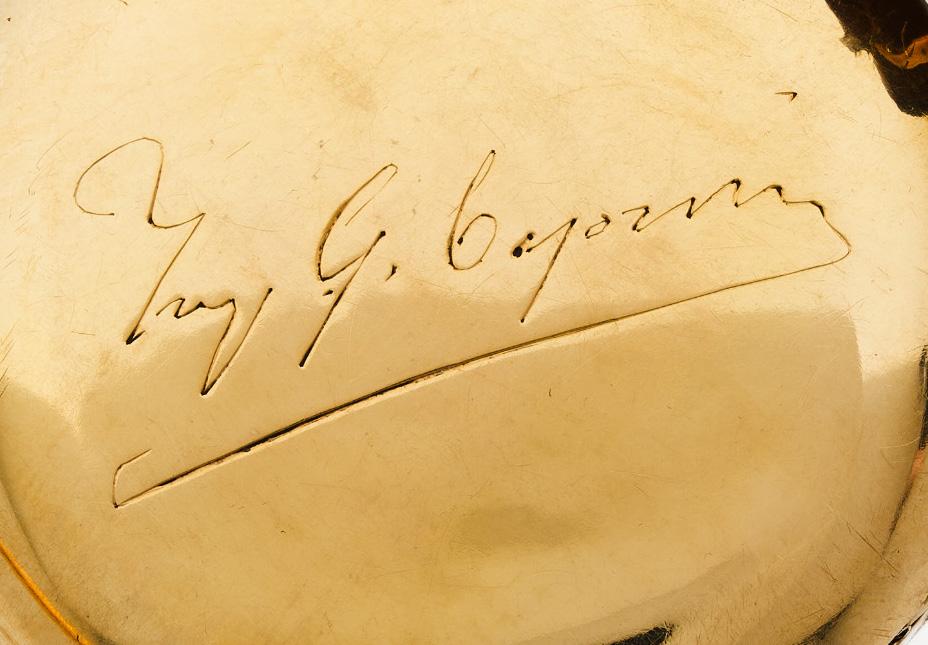 Ing. G. Caproni